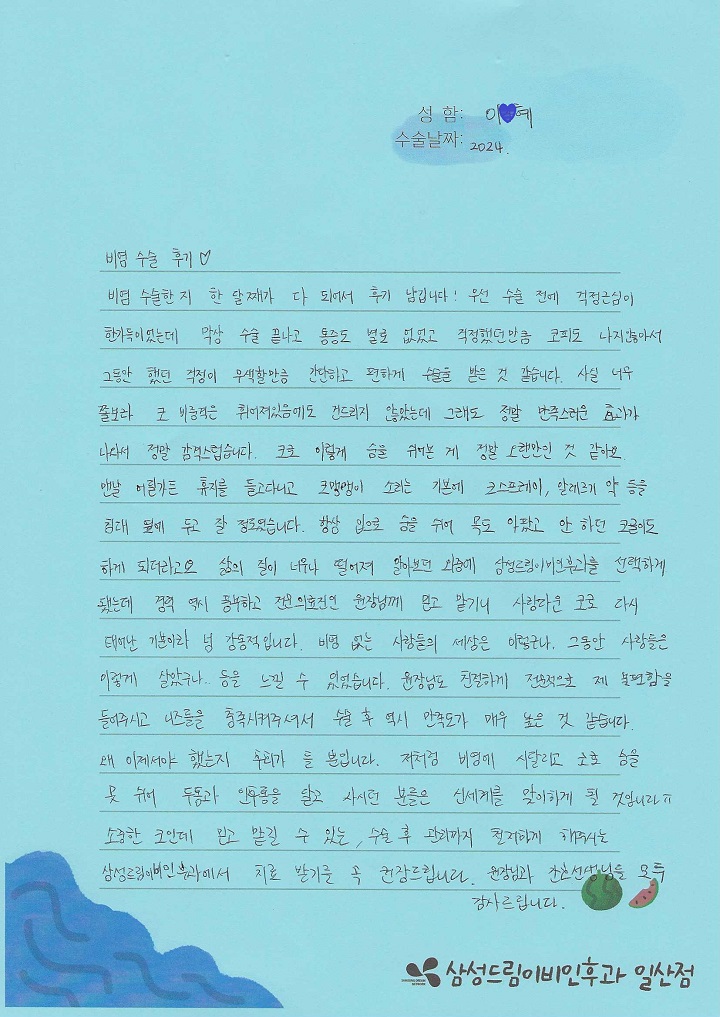 성 함: 이♥혜
수술날짜: 2024.
비염 수술 후기♡
비염 수술한지 한 달째가 다 되어서 후기 남깁니다! 우선 수술 전에 걱정근심이
한가득이었는데 막상 수술 끝나고 통증도 별로 없었고 걱정했던만큼 코피도 나지않아서
그동안 했던 걱정이 무색할만큼 간단하고 편하게 수술을 받은 것 같습니다. 사실 너무
쫄보라 코 비중격은 휘어져있음에도 건드리지 않았는데 그래도 정말 만족스러운 효과가
나와서 정말 감격스럽습니다. 코로 이렇게 숨을 쉬어본 게 정말 오랜만인 것 같아요.
맨날 어딜가든 휴지를 들고다니고 코맹맹이 소리는 기본에 코스프레이, 알레르기 약 등을
침대 옆에 두고 잘 정도였습니다. 항상 입으로 숨을 쉬어 목도 아팠고 안 하던 코골이도
하게 되더라고요 삶의 질이 너무나 떨어져 알아보던 와중에 삼성드림이비인후과를 선택하게
됐는데 경력 역시 풍부하고 전문의료진인 원장님께 믿고 맡기니 사람다운 코로 다시
태어난 기분이라 넘 감동적입니다. 비염 없는 사람들의 세상은 이렇구나. 그동안 사람들은
이렇게 살았구나.. 등을 느낄 수 있었습니다. 원장님도 친절하게 전문적으로 제 불편함을
들어주시고 니즈들을 충족시켜주셔서 수술 후 역시 만족도가 매우 높은 것 같습니다.
왜 이제서야 했는지 후회가 들 뿐입니다. 저처럼 비염에 시달리고 코로 숨을
못 쉬어 두통과 인후통을 달고 사시던 분들은 신세계를 맞이하게 될 것입니다ㅠ
소중한 코인데 믿고 맡길 수 있는, 수술 후 관리까지 철저하게 해주시는
삼성드림이비인후과에서 치료 받기를 꼭 권장드립니다. 원장님과 간호선생님들 모두
감사드립니다.
삼성드림이비인후과 일산점